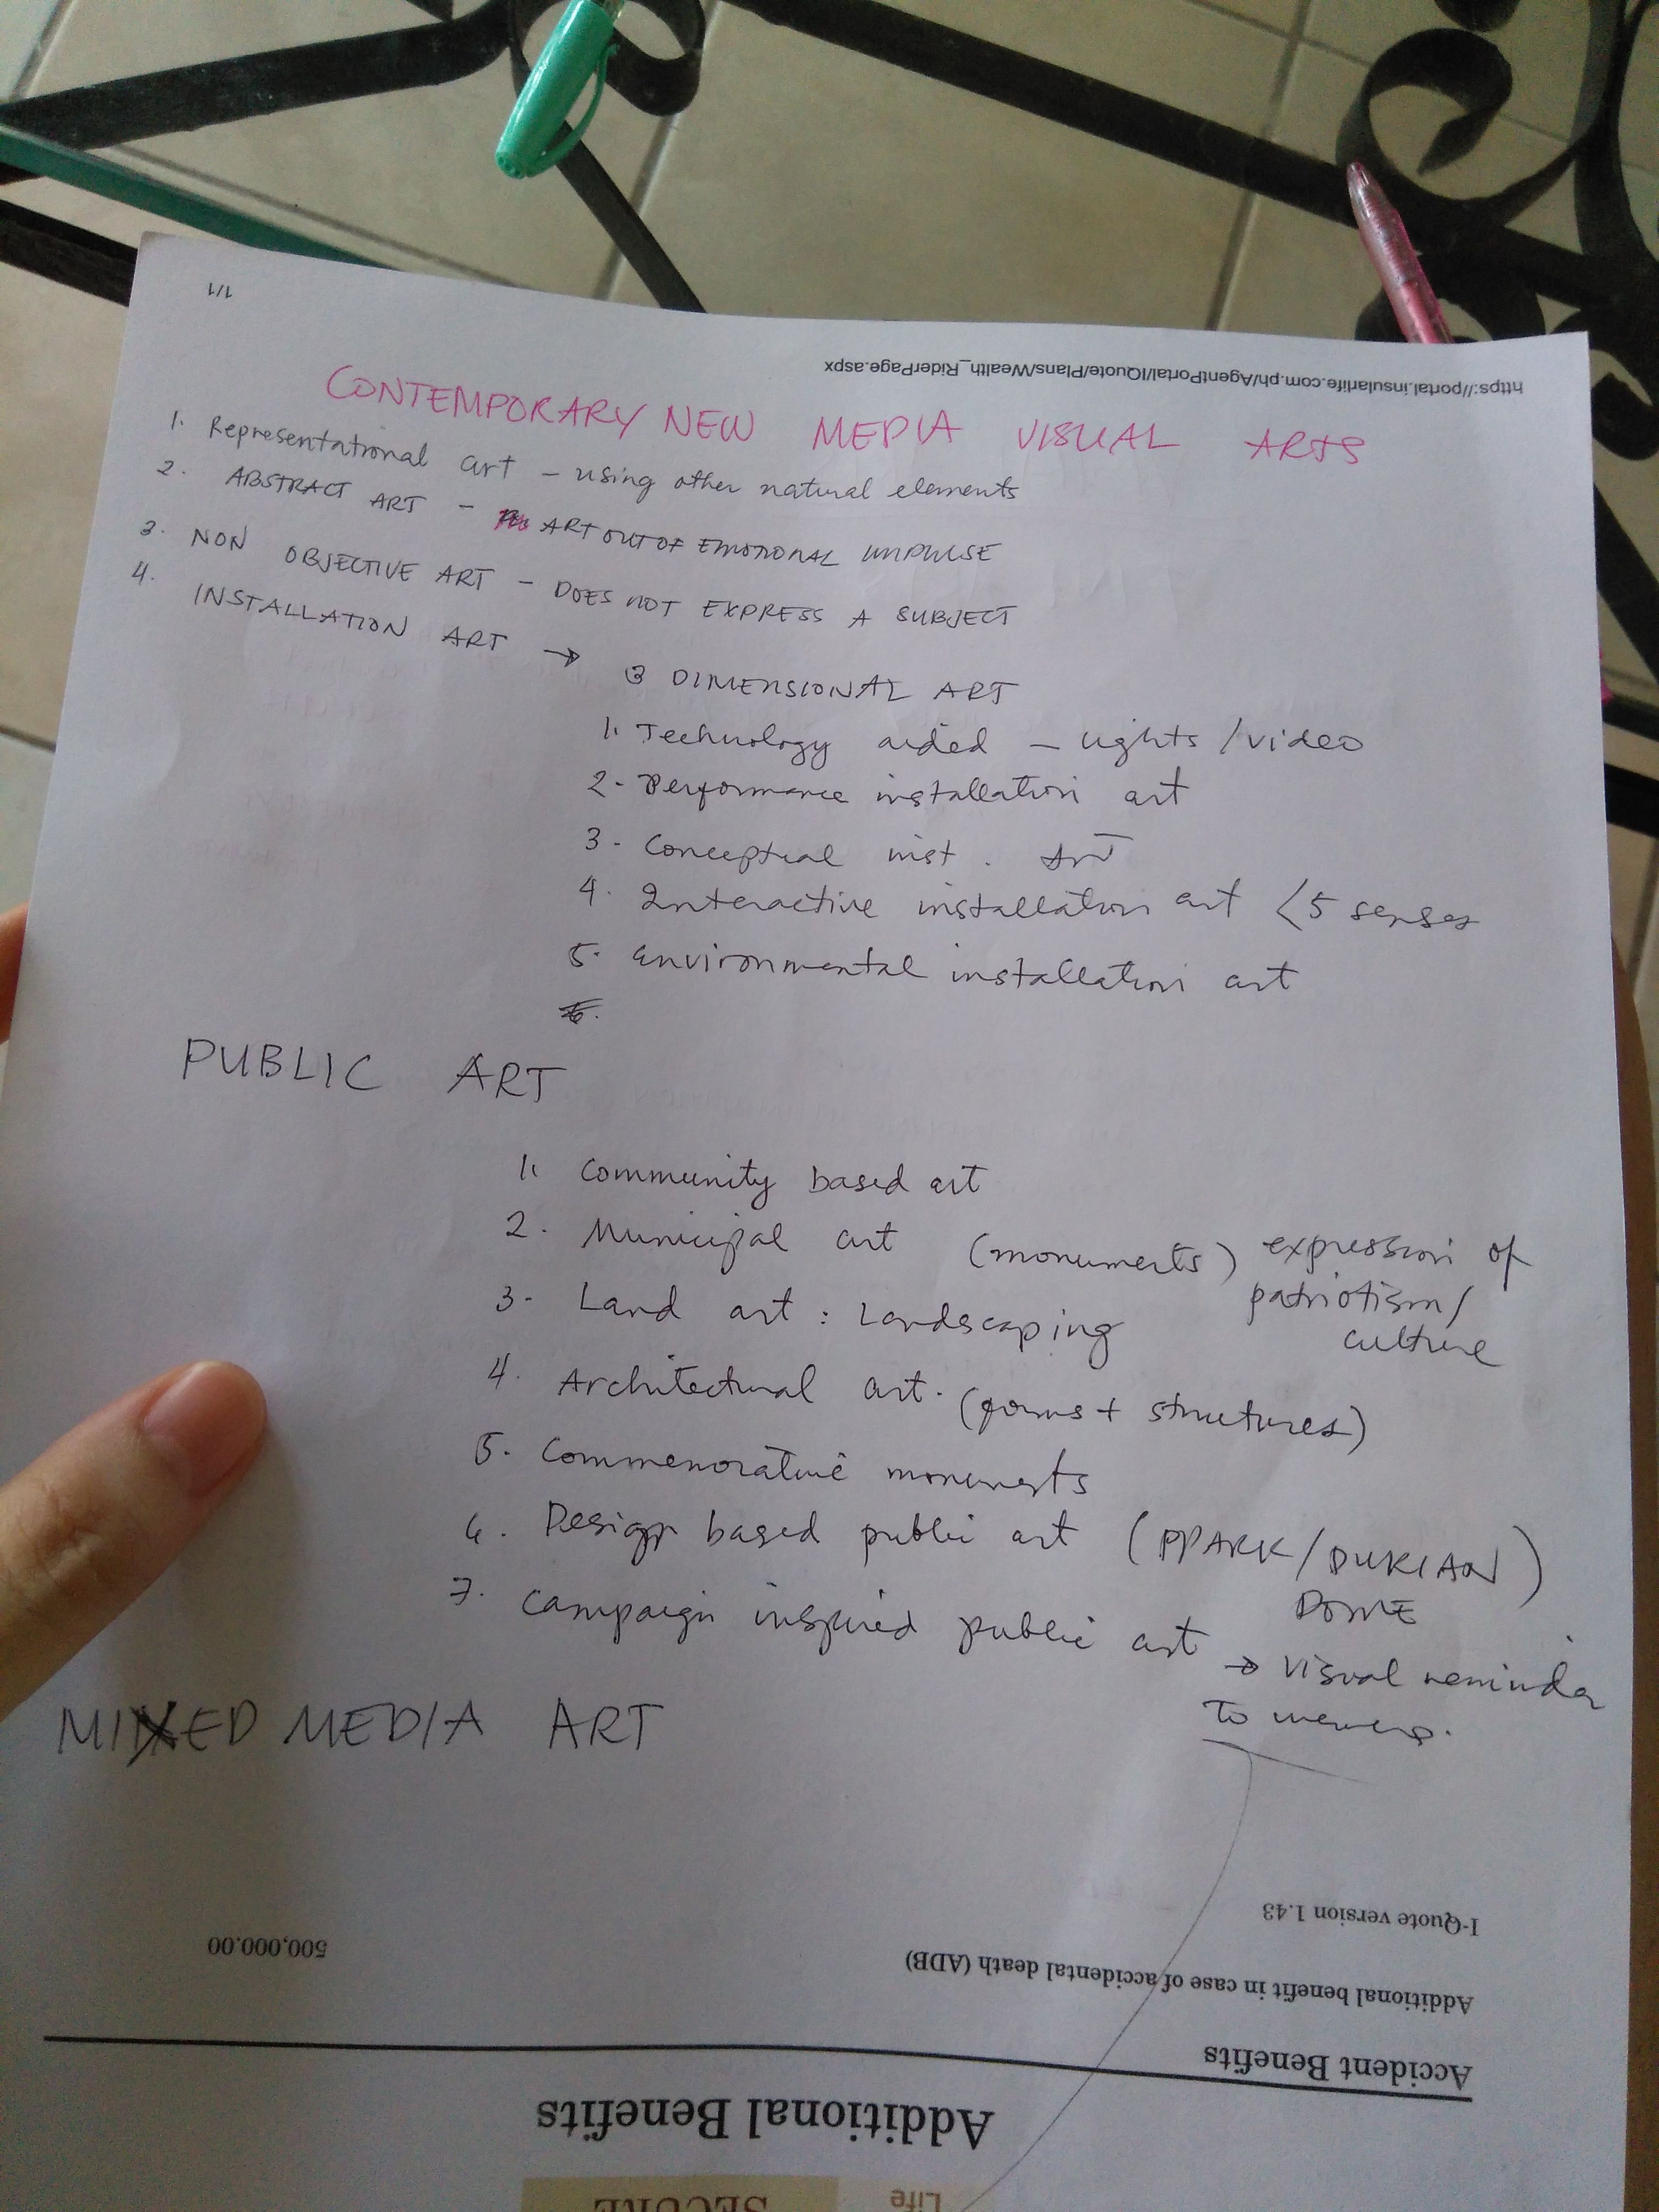 1/1
https://portal.insularlife.com.ph/AgentPortal/IQuote/Plans/Wealth_RiderPage.aspx
CONTEMPORARY NEW MEDIA VISUAL ARTS
1. Representational art – using other natural elements
2. ABSTRACT ART – ART OUT OF EMOTIONAL IMPULSE
3. NON OBJECTIVE ART – DOES NOT EXPRESS A SUBJECT
4. INSTALLATION ART →
3 DIMENSIONAL ART
1. Technology aided – lights / video
2. Performance installation art
3. Conceptual inst. Art
4. Interactive installation art < 5 senses
5. environmental installation art
6.
PUBLIC ART
1. Community based art
2. Municipal art (monuments) expression of
patriotism/
culture
3. Land art : Landscaping
4. Architectural art. (forms + structures)
5. Commemorative monuments
6. Design based public art (PPARK/DURIAN)
DOME
7. Campaign inspired public art → visual reminder
to viewers.
MIXED MEDIA ART
I-Quote version 1.43
500,000.00
Additional benefit in case of accidental death (ADB)
Accident Benefits
Additional Benefits
Life
SECURE